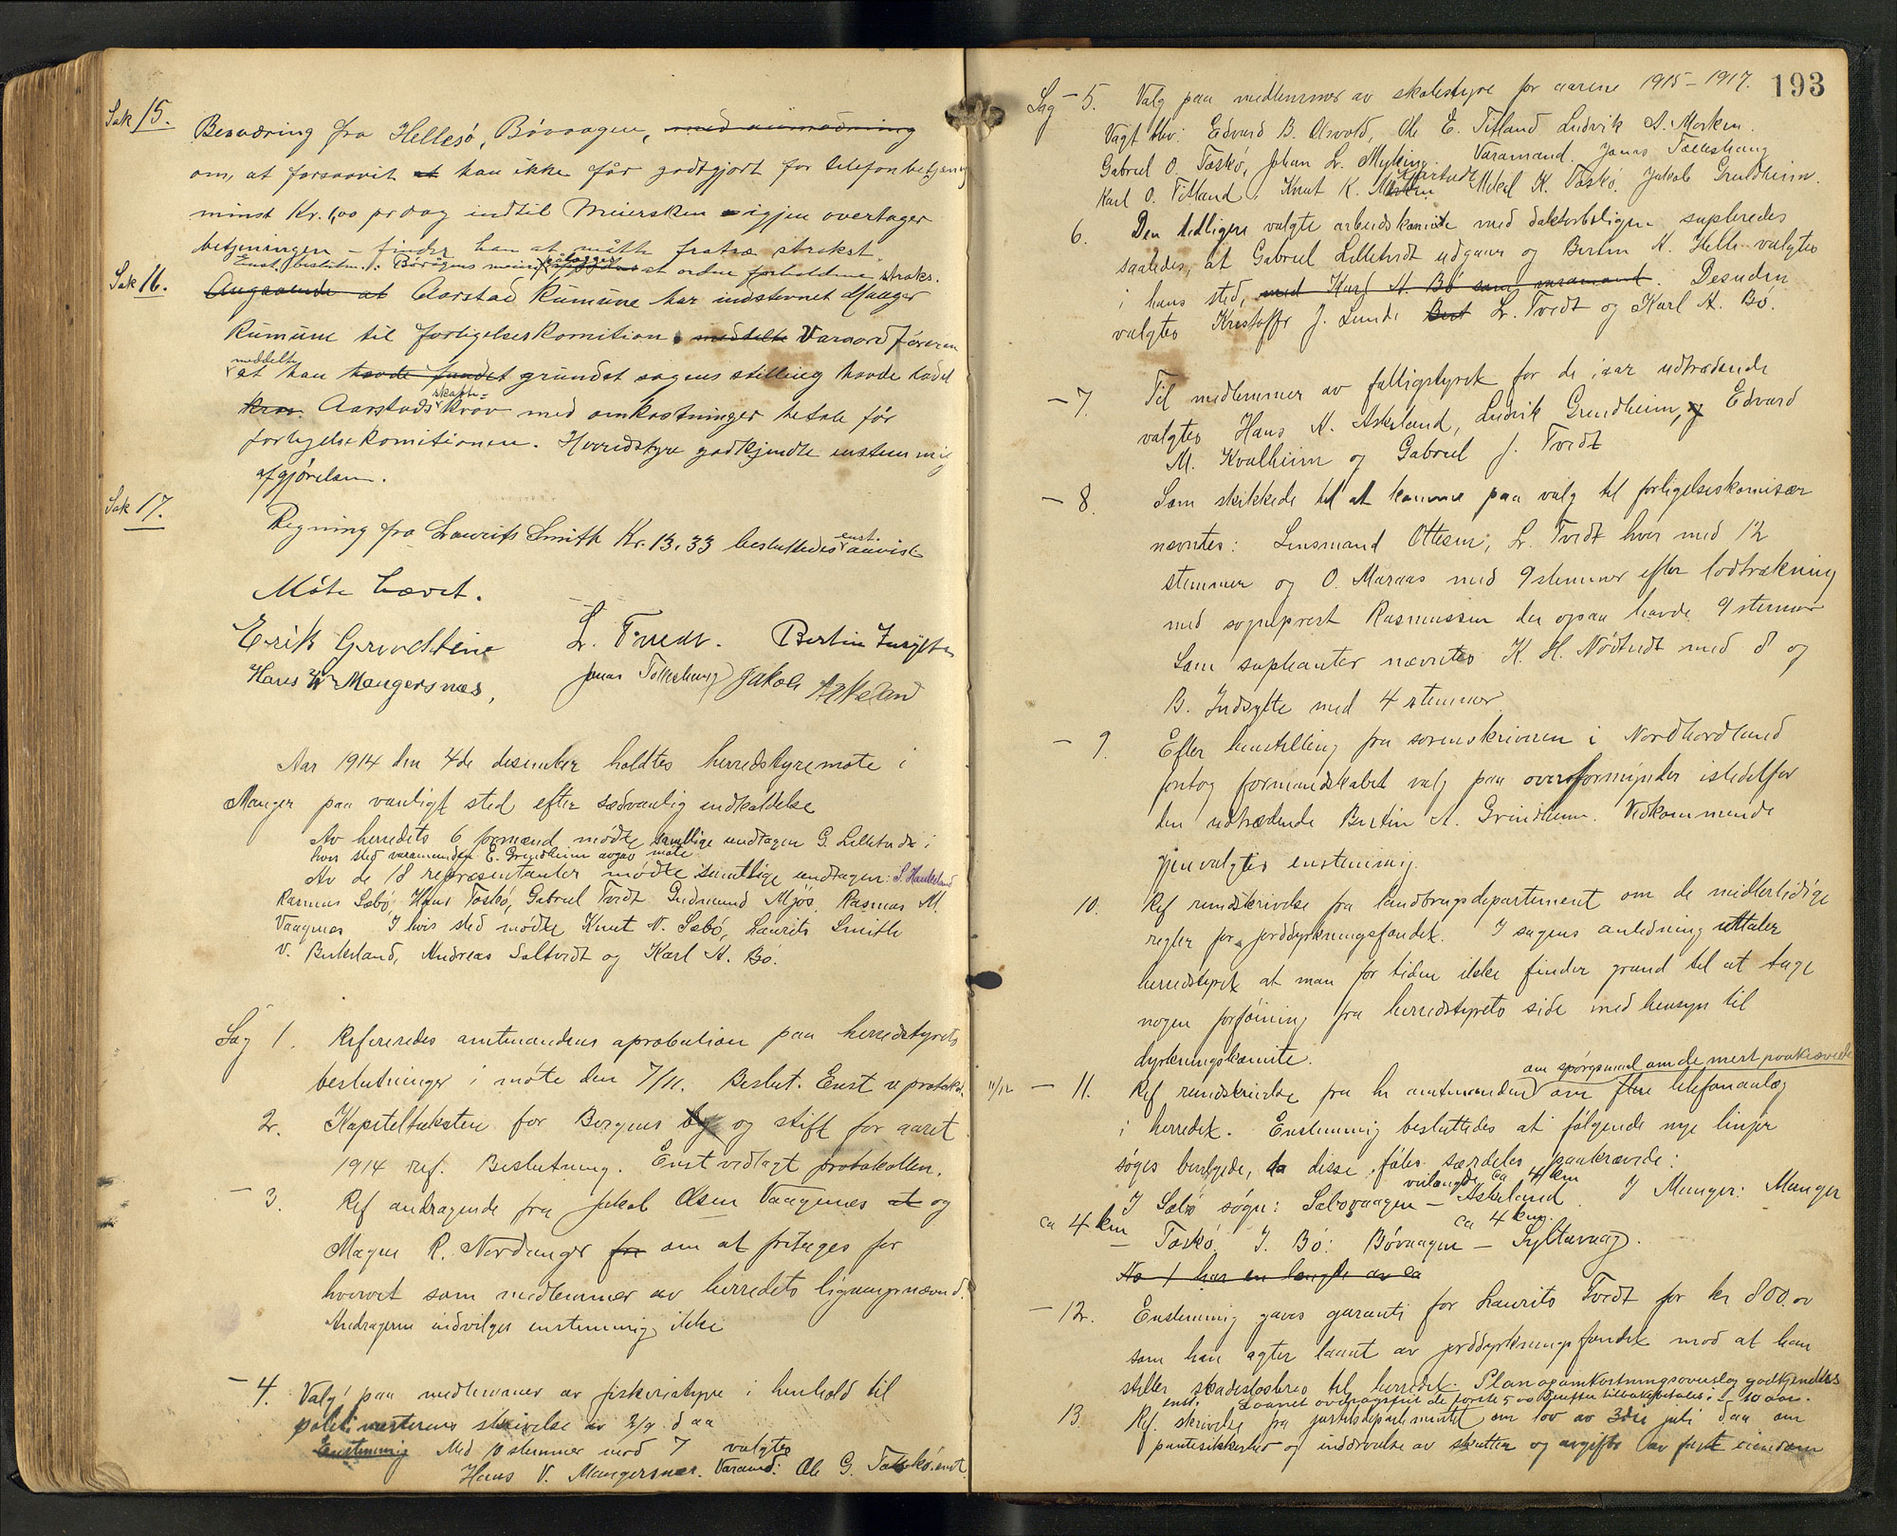 Sak 15. Besværing fra Hellesö, Bövaagen, med anmodning
om, at forsaavit at han ikke får godtgjort for telefonbetjening
minst Kr. 1,00 pr dag indtil Meiersken igjen overtager
betjeningen – finder han at måtte fratræ strakst.
Enst. beslutn.: Bövågens meieri pålægges at ordne forholdene straks.
Sak 16. Angaaende at Aarstad Kumune har indstevnet Manger
Kumune til forligelseskomition meddelte Varaordföreren
meddelte
at han havde fundet grundet sagens stilling havde ladet
skatte-
krav. Aarstads krav med omkostninger betale før
forligelseskomitionen. Herredstyre godkjendte enstemmig
afgjörelsen.
Sak 17. Regning fra Laurits Smith Kr. 13,33 besluttedes enst. anvist
Möte hævet.
Erik Grindheim L. Tvedt. Bertin Insylte
Hans V Mangersnæs, Jonas Tolleshaug Jakob Askeland
Aar 1914 den 4de desember holdtes herredstyremøte i
Manger paa vanligt sted efter sædvanlig indkaldelse
Av herredets 6 formænd mødte samtlige undtagen G. Litletvedt i
hvis sted varamanden E. Grindheim avgav møte
Av de 18 representanter mødte samtlige undtagen: S. Haukeland
Rasmus Sæbö, Hans Toskö, Gabriel Tvedt Gudmund Mjös, Rasmus M.
Vaagenes I hvis sted mødte Knut N. Sæbö, Laurits Smith
V. Birkeland, Andreas Saltvedt og Karl A. Bö.
Sag 1. Refereredes amtmandens aprobation paa herredstyrets
beslutninger i møte den 7/11. Beslut. Enst v protokol.
2. Kapiteltaksten for Bergens by og stift for aaret
1914 ref. Beslutning. Enst vedlagt protokollen.
– 3. Ref andragende fra Jakob Olsen Vaagenes at og
Magne R. Nordanger fra om at fritages for
hvervet som medlemmer av herredets ligningsnævnd.
Andragerne indvilges enstemmig ikke
– 4. Valg paa medlemmer av fiskeristyre i henhold til
politimesterens skrivelse av 2/9. d aa
Enstemmig Med 10 stemmer mod 7 valgtes
Hans V. Mangersnæs. Varamd: Ole G. Toskö. enst
193
Sag – 5. Valg paa medlemmer av skolestyre for aarene 1915 – 1917.
Valgt blev: Edvard B. Osvold, Ole E. Titland Ludvik A. Morken.
Gabriel O. Toskö, Johan L. Myking. Varamænd. Jonas Tolleshaug
Karl O. Titland, Knut K. Mikel K. Toskö, Jakob Grindheim.
6. Den tidligere valgte arbeidskomite med doktorboligen supleredes
saaledes, at Gabriel Litletvedt udgaar og Bertin A. Helle valgtes
i hans sted, med Karl A Bö som varamand. Desuden
valgtes Kristoffer J. Lunde Best L. Tvedt og Karl A. Bö.
– 7. Til medlemmer av fattigstyret for de i aar udtrædende
valgtes Hans A. Askeland, Ludvik Grindheim, og Edvard
M. Kvalheim og Gabriel J. Tvedt
– 8. Som skikkede til at komme paa valg til forligelseskomisær
nævntes: Lensmand Ottesen, L. Tvedt hver med 12
stemmer og O. Maraas med 9 stemmer efter lodtrækning
med sogneprest Rasmussen der ogsaa havde 9 stemmer
Som suplianter nævntes K. H. Nödtvedt med 8 og
B. Indsylte med 4 stemmer.
– 9. Efter henstilling fra sorenskriveren i Nordhordland
foretog formandskabet valg paa overformynder istedetfor
den udtrædende Bertin A. Grindheim. Vedkommende
gjenvalgtes enstemmig.
10. Ref rundskrivelse fra landbrugsdepartement om de midlertidige
regler for jorddyrkningsfondet. I sagens anledning uttaler
herredstyret at man for tiden ikke finder grund til at tage
nogen forføining fra herredstyrets side med hensyn til
dyrkningskomite.
om spörgsmaal om de mest paakrævede
11/12 – 11. Ref rundskrivelse fra hr amtmanden om flere telefonanlæg
i herredet. Enstemmig besluttedes at følgende nye linjer
søges bevilgede, da disse føles særdeles paakrævde:
veilængde ca 4 km
I Sæbö sogn: Sæbövaagen – Askeland. I Manger: Manger
ca 4 km – Toskö. I. Bö: Bövaagen – Syltavaag. ca 4 km.
No 1 har en længde av ca
– 12. Enstemmig gaves garanti for Laurits Tvedt for kr 800.00
som han agter laant av jorddyrkningsfondet mod at han
stiller skadesløsbrev til herredet. Plan og omkostningsoverslag godkjendtes
enst. Laanet avdragsfrit de förste 5 aar derefter tilbakebetales i 10 aar.
13. Ref. skrivelse fra justisdepartementet om lov av 3die juli d aa om
pantesikkerhed og inddrivelse av skatter og avgifter av fast eiendom